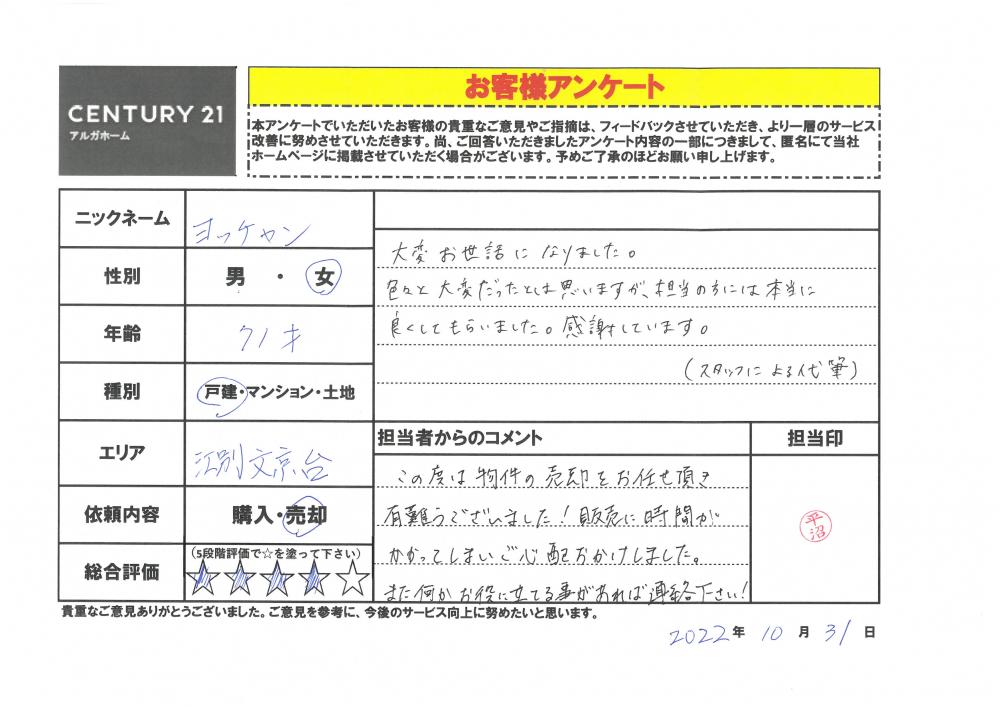 CENTURY 21
アルガホーム
お客様アンケート
本アンケートでいただいたお客様の貴重なご意見やご指摘は、フィードバックさせていただき、より一層のサービス
改善に努めさせていただきます。尚、ご回答いただきましたアンケート内容の一部につきまして、匿名にて当社
ホームページに掲載させていただく場合がございます。予めご了承のほどお願い申し上げます。
ニックネーム
ヨッケャン
性別
男 ・ 女
年齢
70才
種別
戸建・マンション・土地
エリア
江別文京台
依頼内容
購入・売却
総合評価
(5段階評価で☆を塗って下さい)
大変お世話になりました。
色々と大変だったとは思いますが、担当の方には本当に
良くしてもらいました。感謝しています。
(スタッフによる代筆)
担当者からのコメント
この度は物件の売却をお任せ頂き
有難うございました!販売に時間が
かかってしまいご心配おかけしました。
また何かお役に立てる事があれば連絡下さい!
担当印
平沼
貴重なご意見ありがとうございました。ご意見を参考に、今後のサービス向上に努めたいと思います。
2022年 10月 31日